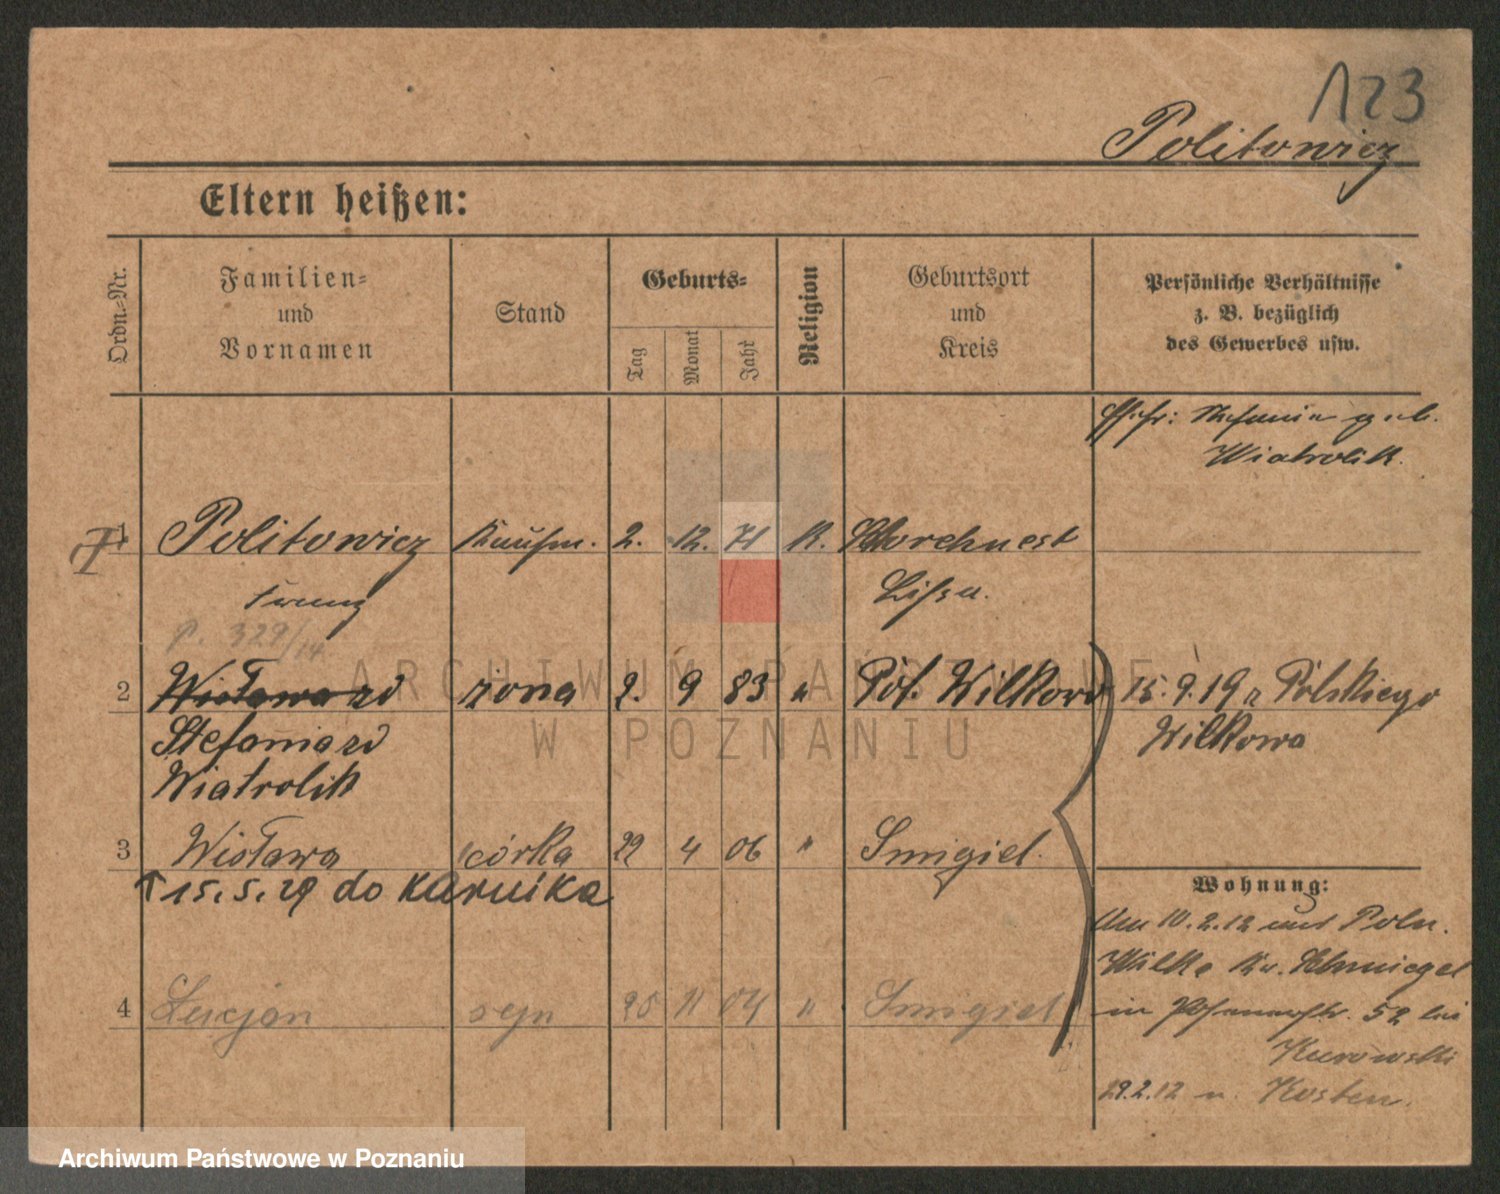 123
Politowicz
Eltern heißen:
Ordn.=Nr.
Familien=
und
Vornamen
Stand
Geburts=
Tag
Monat
Jahr
Religion
Geburtsort
und
Kreis
Persönliche Verhältnisse
z. B. bezüglich
des Gewerbes usw.
Ehefr: Stefania geb.
Wiatrolik.
1 Politowicz Kaufm. 2. 12. 71 K. Storchnest
Franz Lissa.
P. 329/14
2 Wisława zd żona 2. 9 83 " Pol. Wilkowo 15.9.19 z Polskiego
Stefania zd Wilkowa
Wiatrolik
3 Wisława córka 22 4 06 " Smigiel.
† 15.5.29 do Karnika
Wohnung:
Am 10.2.12 aus Poln.
Wilke Kr. Schmiegel
4 Lucjan syn 25 11 04 " Smigiel in Posenerstr. 52 bei
Kurowski
29.2.12 n. Kosten.
ARCHIWUM PAŃSTWOWE
W POZNANIU
Archiwum Państwowe w Poznaniu